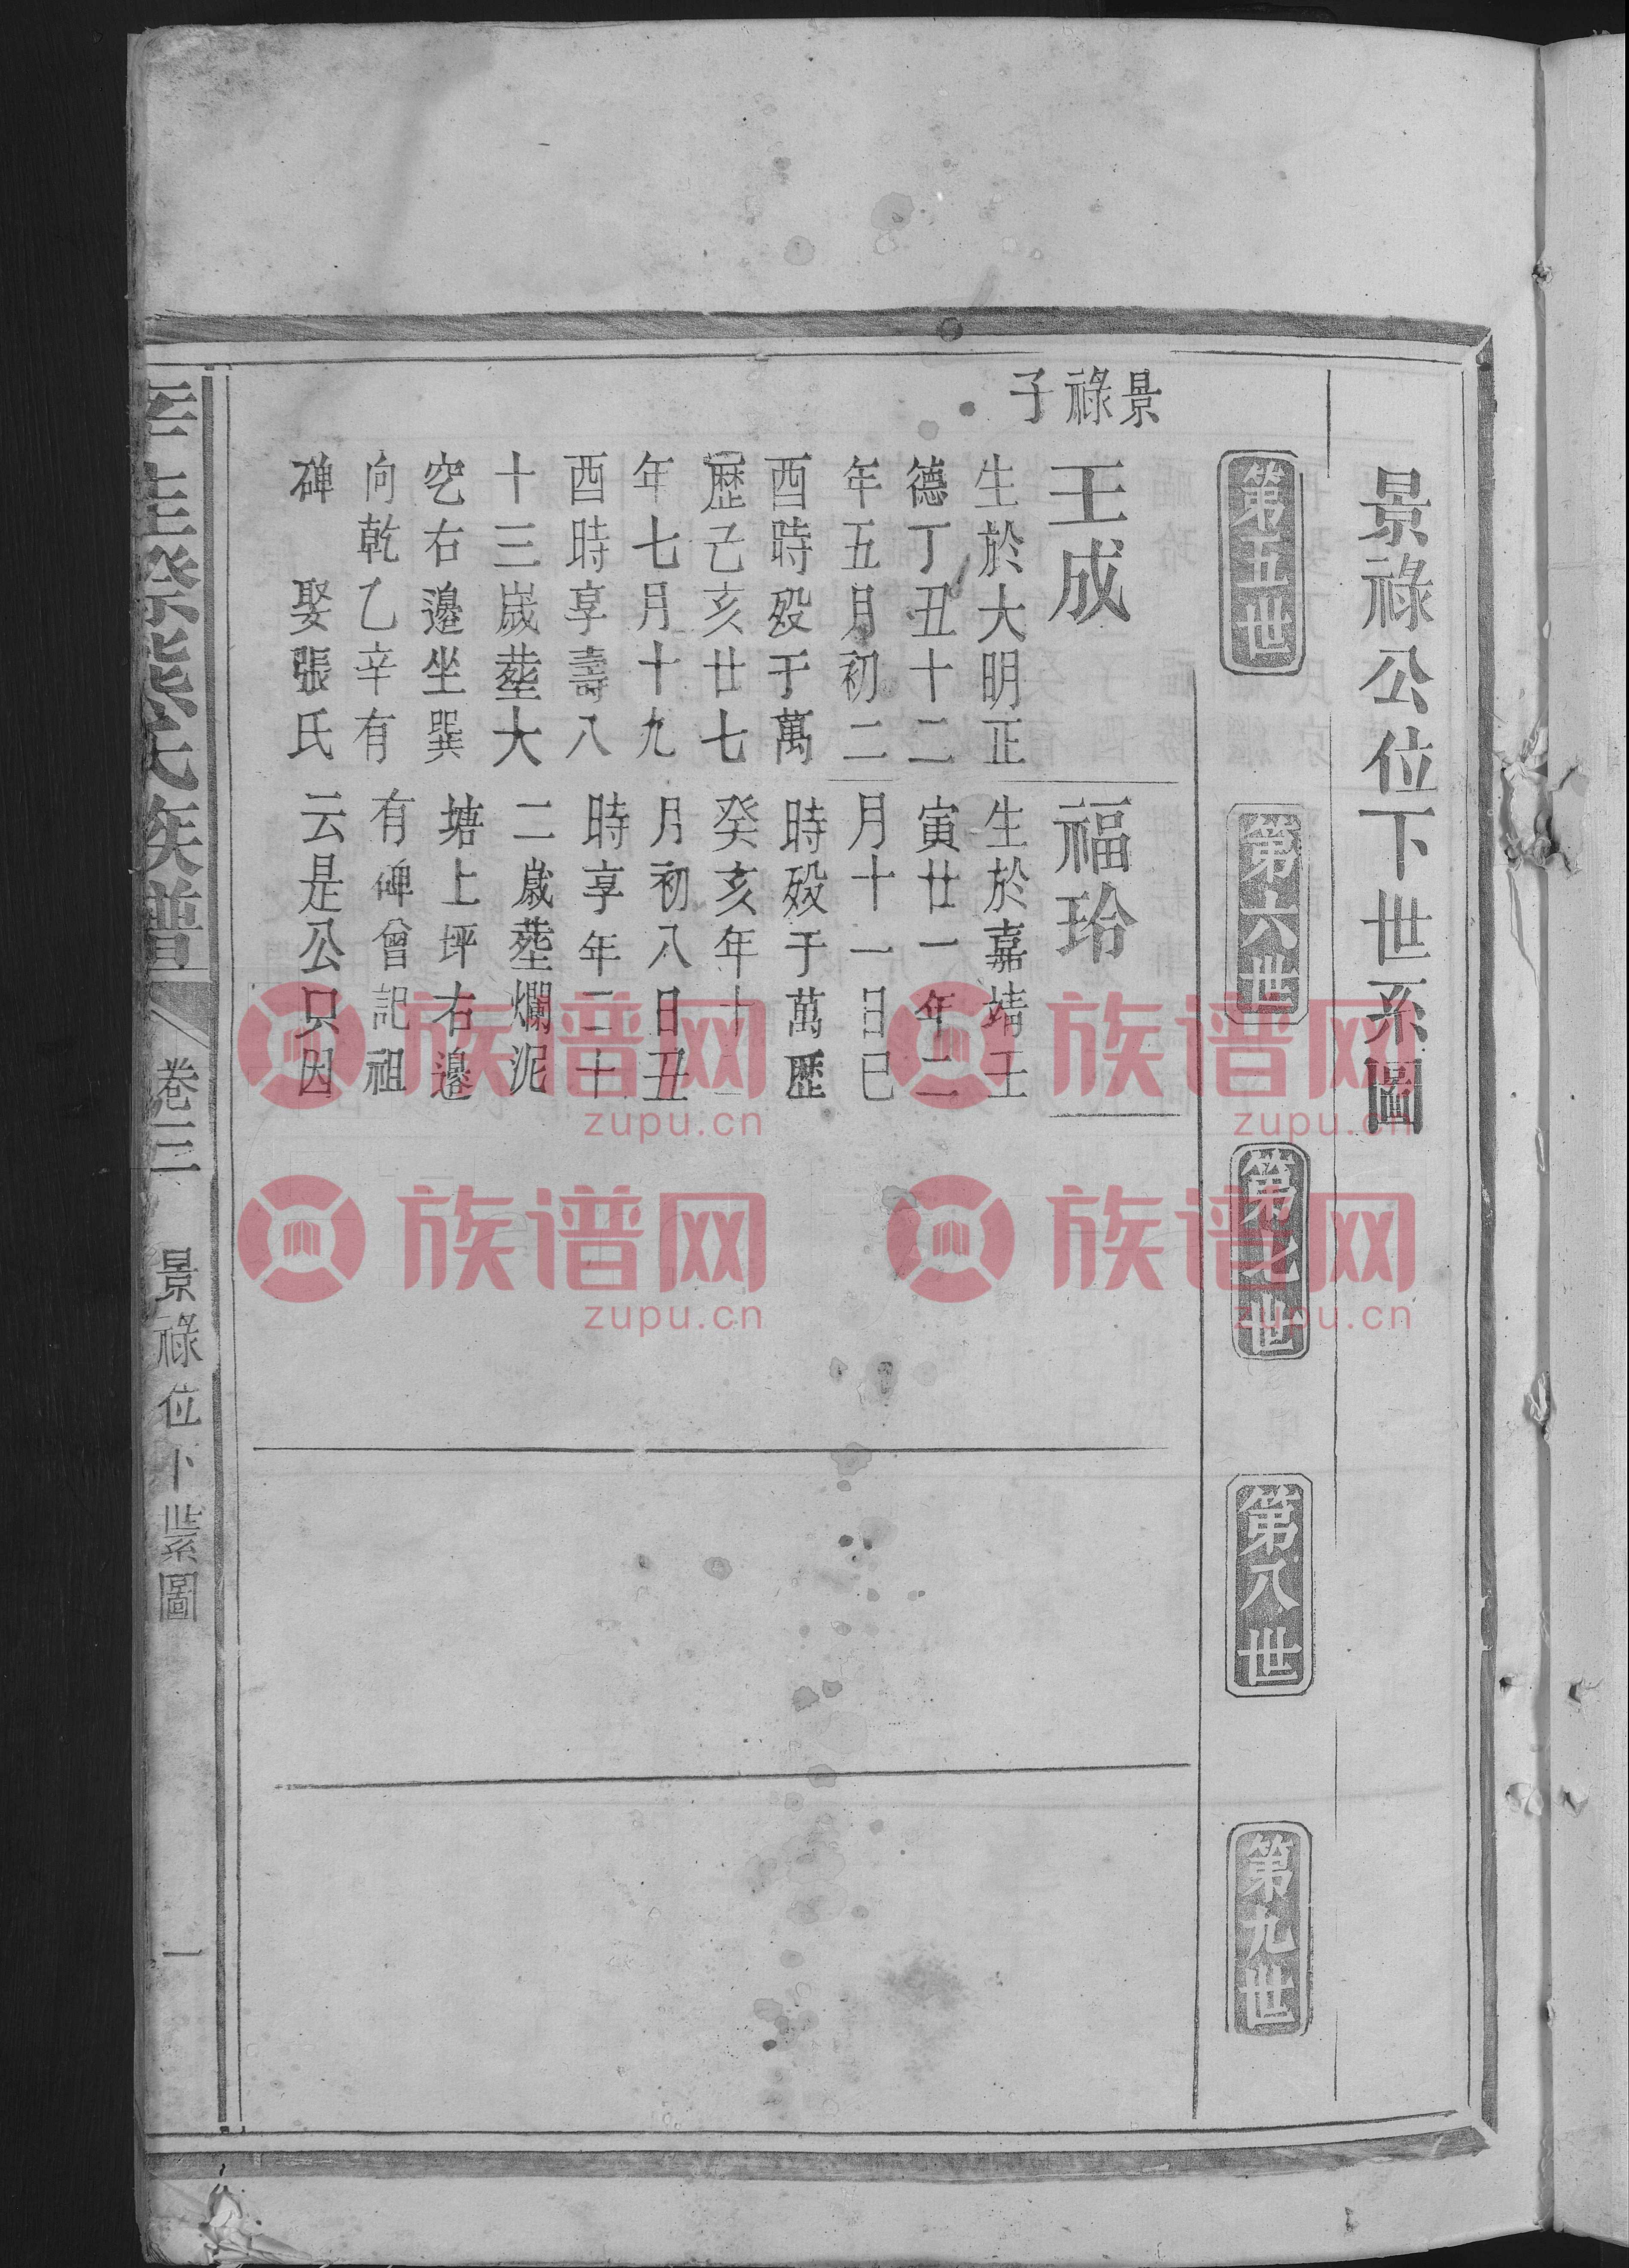 景祿公位下世系圖
第五世
第六世
第七世
第八世
第九世
景祿子
王成
生於大明正
德丁丑十二
年五月初二
酉時歿于萬
歷己亥廿七
年七月十九
酉時享壽八
十三嵗塟大
穵右邉坐巽
向乾乙辛有
碑 娶張氏
福玲
生於嘉靖壬
寅廿一年二
月十一日巳
時歿于萬歷
癸亥年十一
月初八日丑
時享年二十
二嵗塟爛泥
塘上坪右邉
有碑曾記祖
云是公只因
氏族譜
卷三
景祿位下世系圖
一
族谱网
zupu.cn
族谱网
zupu.cn
族谱网
zupu.cn
族谱网
zupu.cn